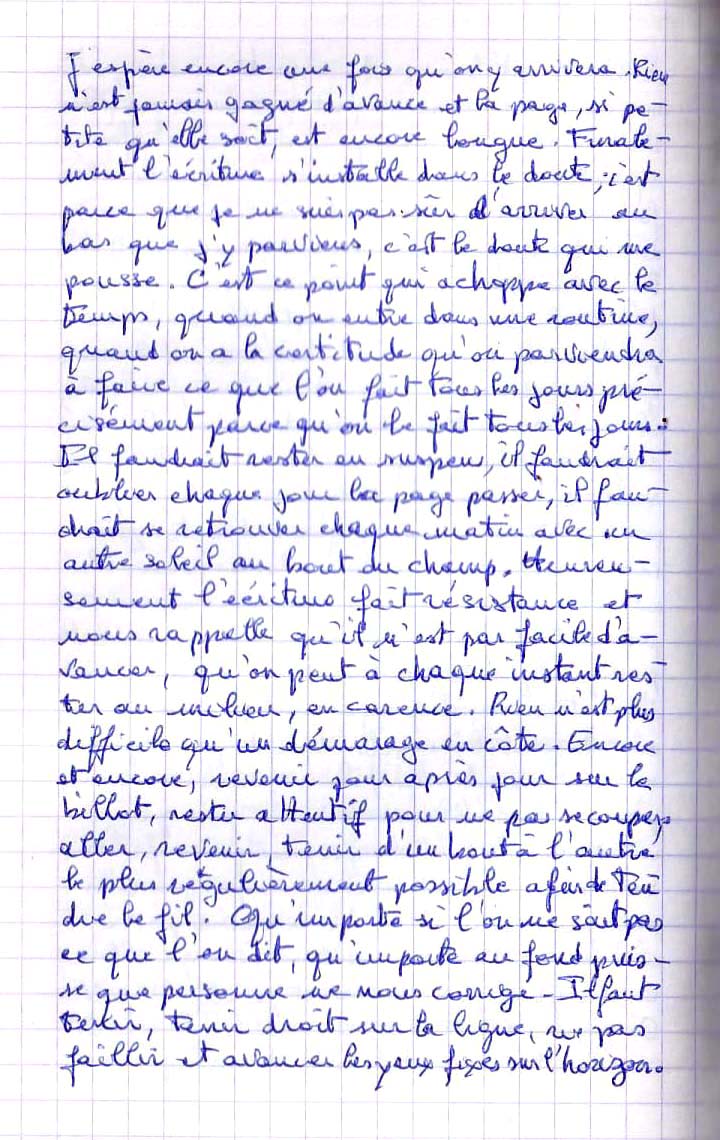 J'espère encore une fois qu'on y arrivera. Rien
n'est jamais gagné d'avance et la page, si pe-
tite qu'elle soit, est encore longue. Finale-
ment l'écriture s'installe dans le doute, c'est
parce que je ne suis pas sûr d'arriver en
bas que j'y parviens, c'est le doute qui me
pousse. C'est ce point qui achoppe avec le
temps, quand on entre dans une routine,
quand on a la certitude qu'on parviendra
à faire ce que l'on fait tous les jours pré-
cisément parce qu'on le fait tous les jours.
Il faudrait rester en suspens, il faudrait
oublier chaque jour la page passée, il fau-
drait se retrouver chaque matin avec un
autre soleil au bout du champ. Heureu-
sement l'écriture fait résistance et
nous rappelle qu'il n'est pas facile d'a-
vancer, qu'on peut à chaque instant res-
ter au milieu, en carence. Rien n'est plus
difficile qu'un démarage en côte. Encore
et encore, revenir jour après jour sur le
billot, rester attentif pour ne pas se couper,
aller, revenir, tenir d'un bout à l'autre
le plus régulièrement possible afin de ten
dre le fil. Qu'importe si l'on ne sait pas
ce que l'on dit, qu'importe au fond puis-
se que personne ne nous corrige. Il faut
tenir, tenir droit sur la ligne, ne pas
faillir et avancer les yeux fixés sur l'horizon.